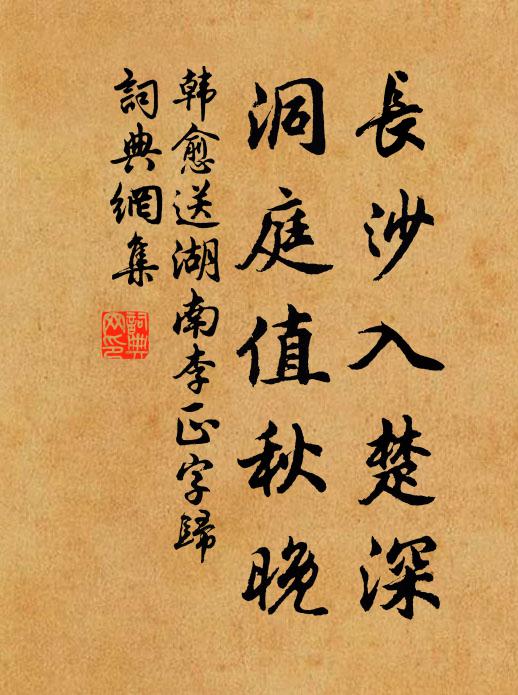 長沙入楚深
洞庭值秋晚
韩愈送湖南李正字歸
詞典網集
詞典網印